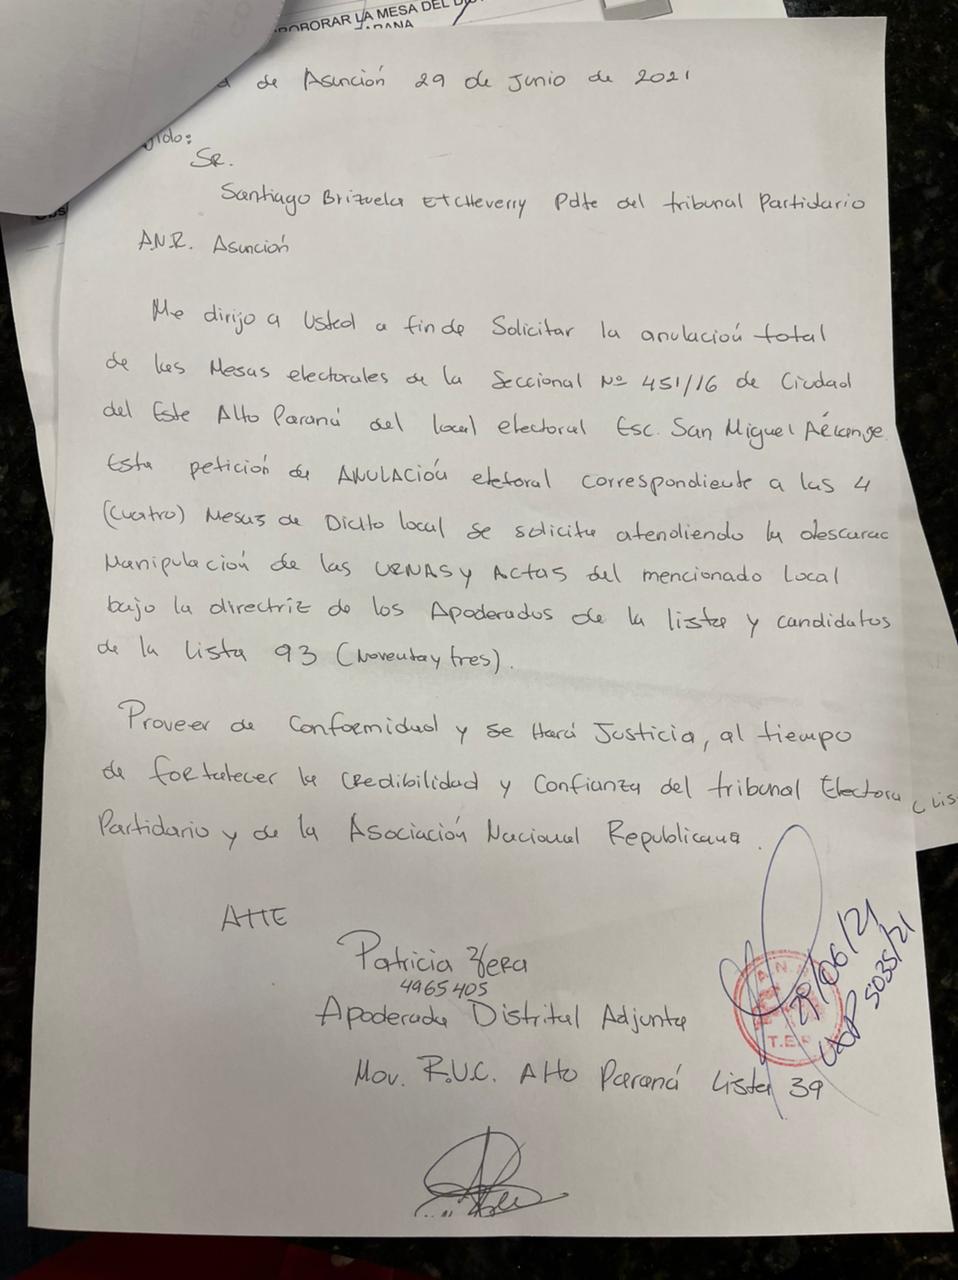 BORAR LA MESA DEL
de Asunción 29 de Junio de 2021
gido:
SR.
Santiago Brizuela Etcheverry Pdte del tribunal Partidario
A.N.R. Asunción
Me dirijo a Usted a fin de Solicitar la anulación total
de las Mesas electorales de la Seccional Nº 451/16 de Ciudad
del Este Alto Paraná del local electoral Esc. San Miguel
Esta petición de ANULACIÓN eletoral correspondiente a las 4
(cuatro) Mesas de Dicho local se solicita atendiendo la descarac
Manipulación de las URNAS y ACTAS del mencionado Local
bajo la directriz de los Apoderados de la lista y candidatos
de la lista 93 (Noventa y tres).
Proveer de Conformidad y se Hará Justicia, al tiempo
de fortalecer la credibilidad y Confianza del tribunal Electora
Partidario y de la Asociación Nacional Republicana.
ATTE
Patricia
4965405
Apoderada Distrital Adjunta
Mov. R.U.C. Alto Paraná Lista 39
A.N.
T.E.P.
29/06/21
5035/21